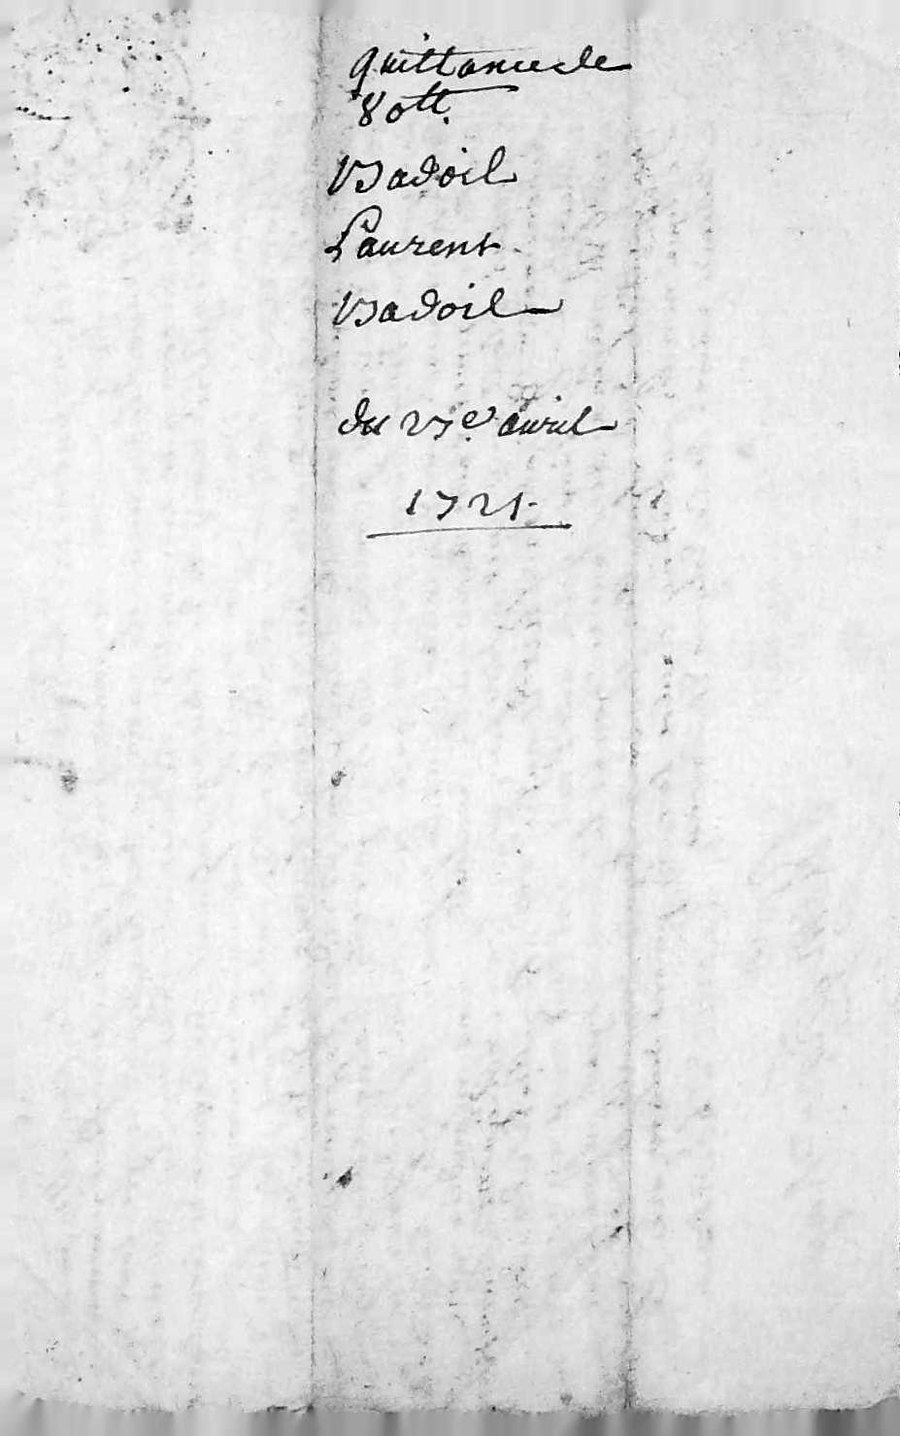 quittance de
80tt.
Badoil
Laurent
Badoil
du 27e. avril
1721.